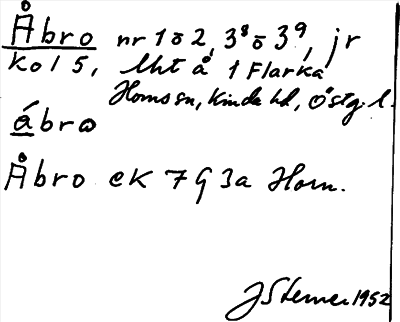 Åbro nr 1 o 2, 3⁸ o 3⁹, jr
kol 5, lht å 1 Flarka
Horns sn, Kinda hd, Östg. l.
ábro
Åbro ek 7 G 3a Horn.
J Sterner 1952